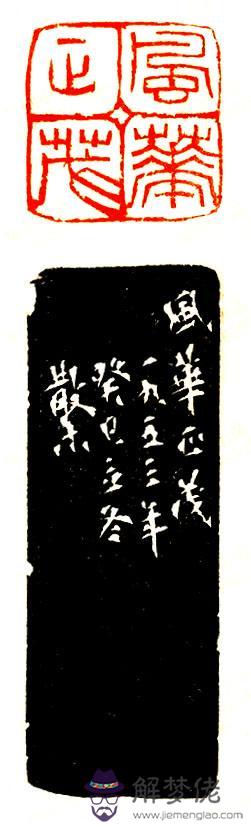 風華正茂
風華正茂
一九五三年
癸巳立冬
散木
解梦佬
www.jiemenglao.com